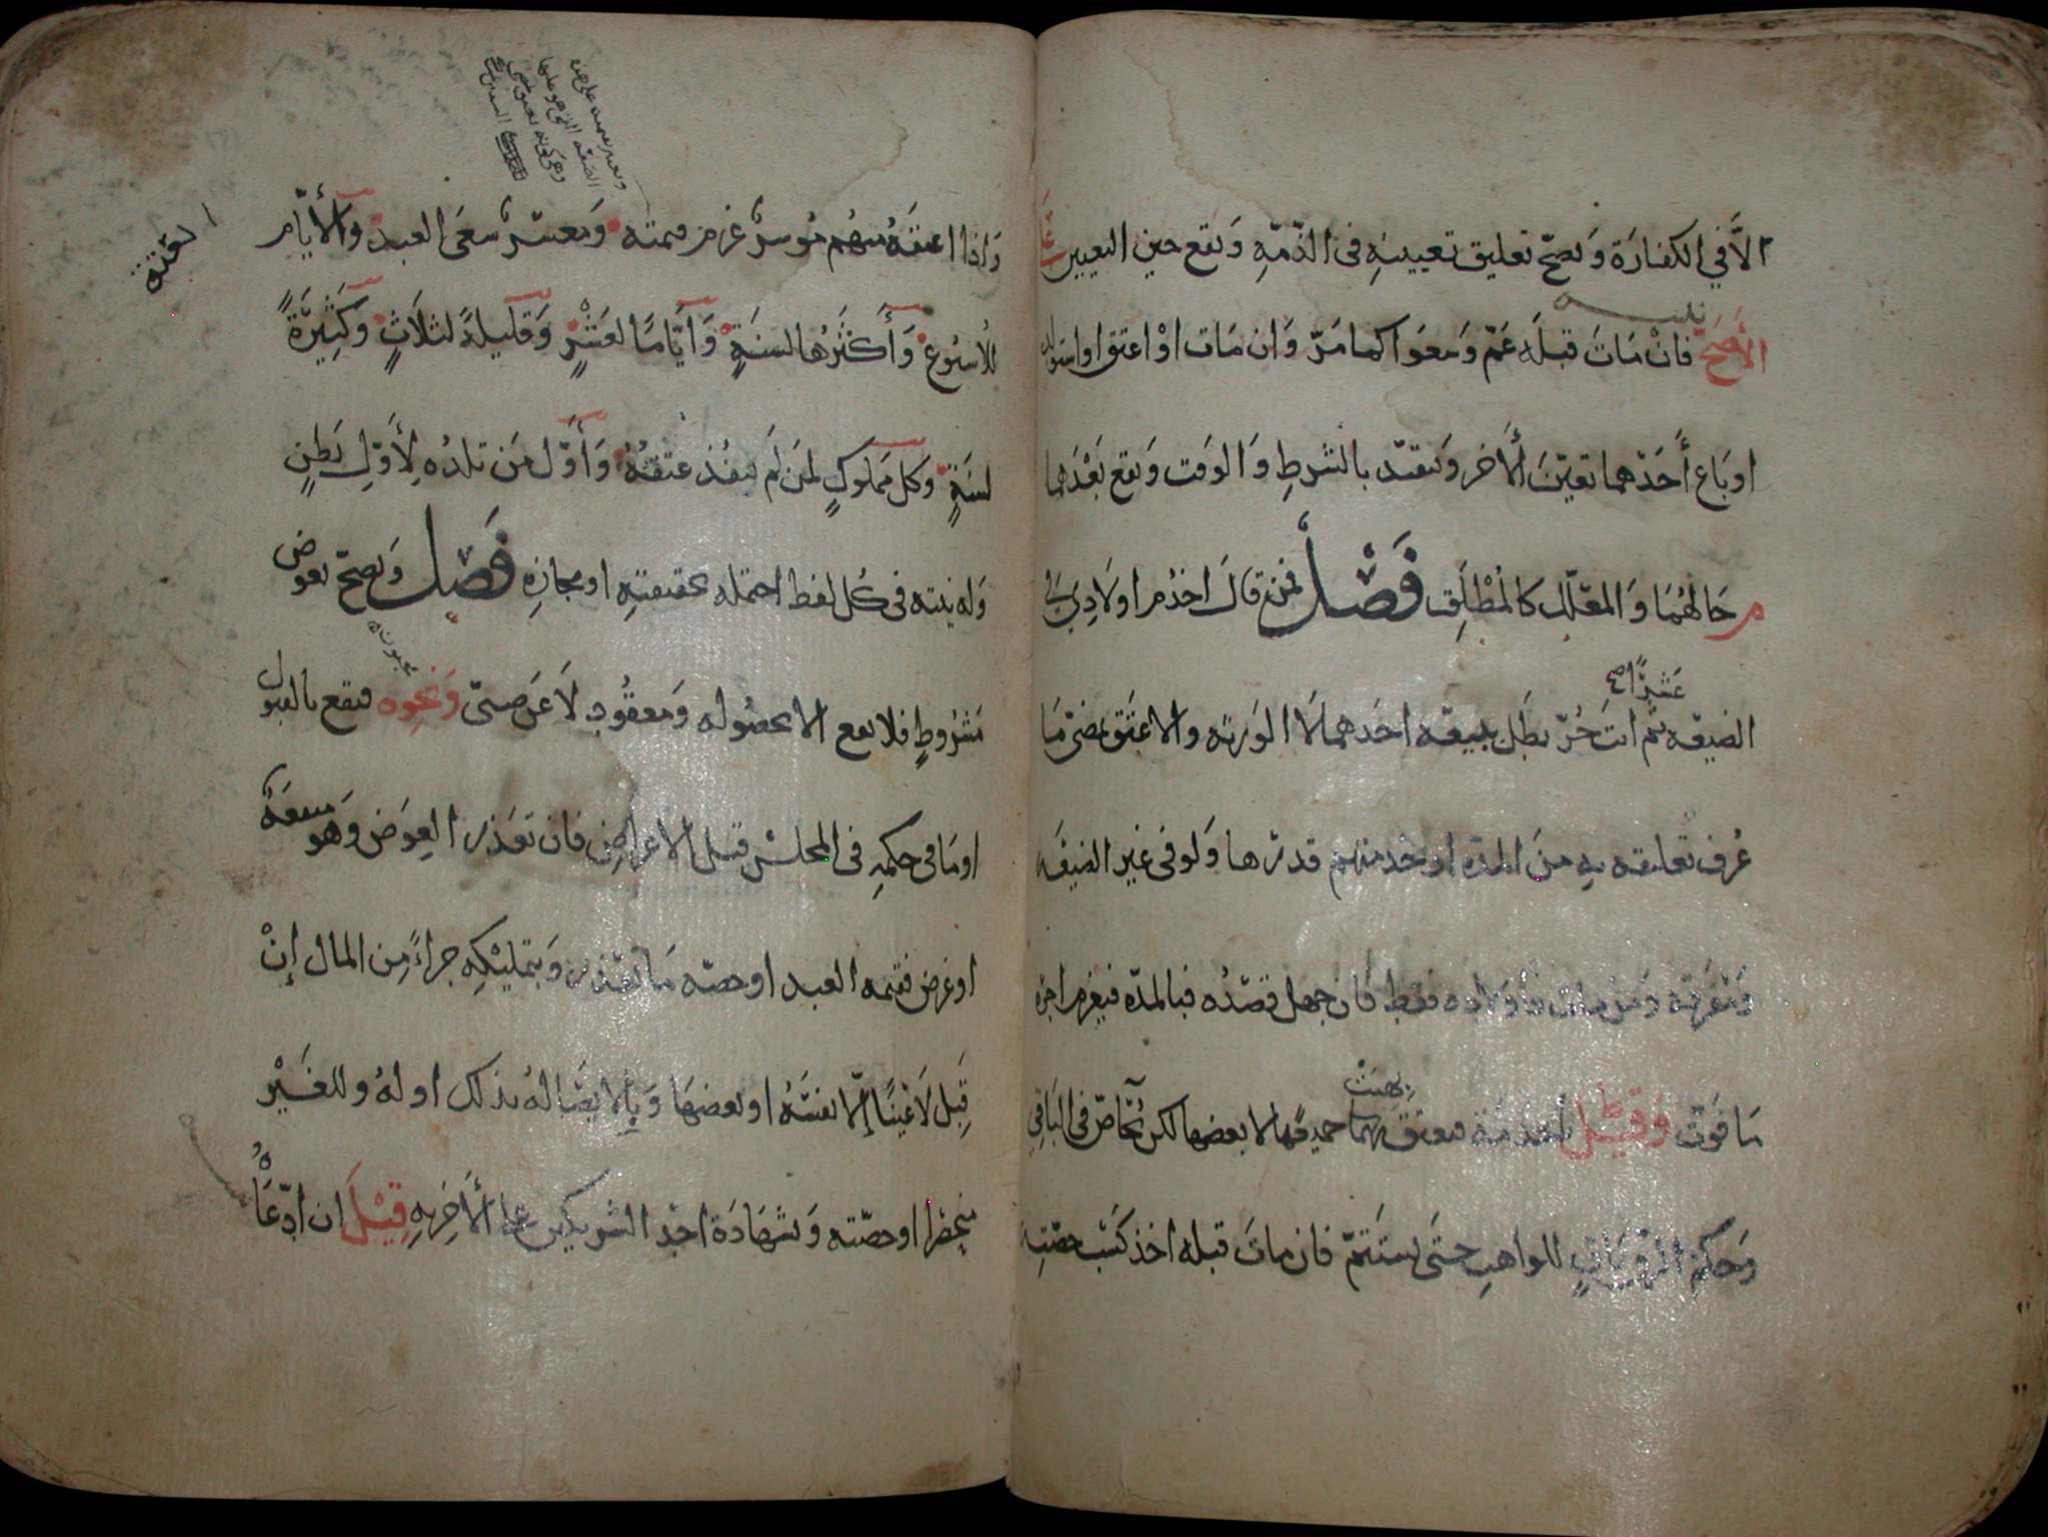 الاَّ في الكفارَة وَيصحّ تعليق تعيينهِ في الذّمّهِ وَيقع حين التعيين عَلَى
الأَصَحّ فانْ مَاتَ قبلَه عَمّ وَسَعَوا كما مَرّ وَان مَات اوْ اعتق او استولد
او بَاع أَحَدهما تعيّنَ الأَخر وَيتقيّد بالشرطِ وَالوَقت وَيقع بَعْدَهما
م حَالهُمَا وَالمعَلّل كالمُطْلَق فَصْل فمن قالَ اخدُم اولَادِي في
الضيعه ثم انتَ حُرّ بطَل ببيعه احَدهما لَا الوَرثه والا عَتَق بمضي مَا
عَشرًا اصح
عُرف تعليقه بهِ منَ المدّة او خدمتهم قدرها وَلو في غير الضيعَه
وَمُفَرّقه وَمَن مات فاولاده فقط فان جهل قصدُه فبالمدّه فيغرم اجره
مَا فَوّت وَقيل بالخدمة فيعتق بهبتهما جميعها لا بعضها لكن يُحَاصّ في البَاقي
وَحكم الرق باقٍ للواهبِ حتى يستَتمّ فان ماتَ قبله اخذ كسْب حصّتهِ
وَاذا اعتقَهُ منهم مُوسرٌ غرم قيمته وَمعسرٌ سعَى العبد وَالأيّام
للاسبوع وَأَكثَرُها لسنَةٍ وَأيّامًا لعَشْرٍ وَقليلةً لثلاثٍ وَكَثيرَةً
لسنَةٍ وَكل مَملوكٍ لمَن لَم ينفُذ عتقهُ وَأَوّل مَن تلدُه لِأَوّلِ بَطنٍ
وَله نيته في كُل لفظ احتمله بحقيقتهِ او مجازهِ فَصْل وَيصحّ بعوض
مَشرُوطٍ فلا يقع الا بحصُوله وَمعقُودٍ لَا عَن صبيّ وَنحوه فيقع بالقبول
او مَا في حكمهِ في المجلس قبل الاعراض فان تعَذر العِوَض وَهو منفعَة
او غرض فقيمه العبد او حصّه مَا تعذر وَبتمليْكهِ جزاءً مِن المال إِنْ
قَبِل لَا عَينًا إِلَّا نفسَهُ او بعضهَا وَبِالايصَا لهُ بذلك او لهُ وللغَيْر
منحصرًا او حصّته وَبشهَادَة احدِ الشريكين على الأَخِر بهِ قِيْلَ ان ادّعَاهُ